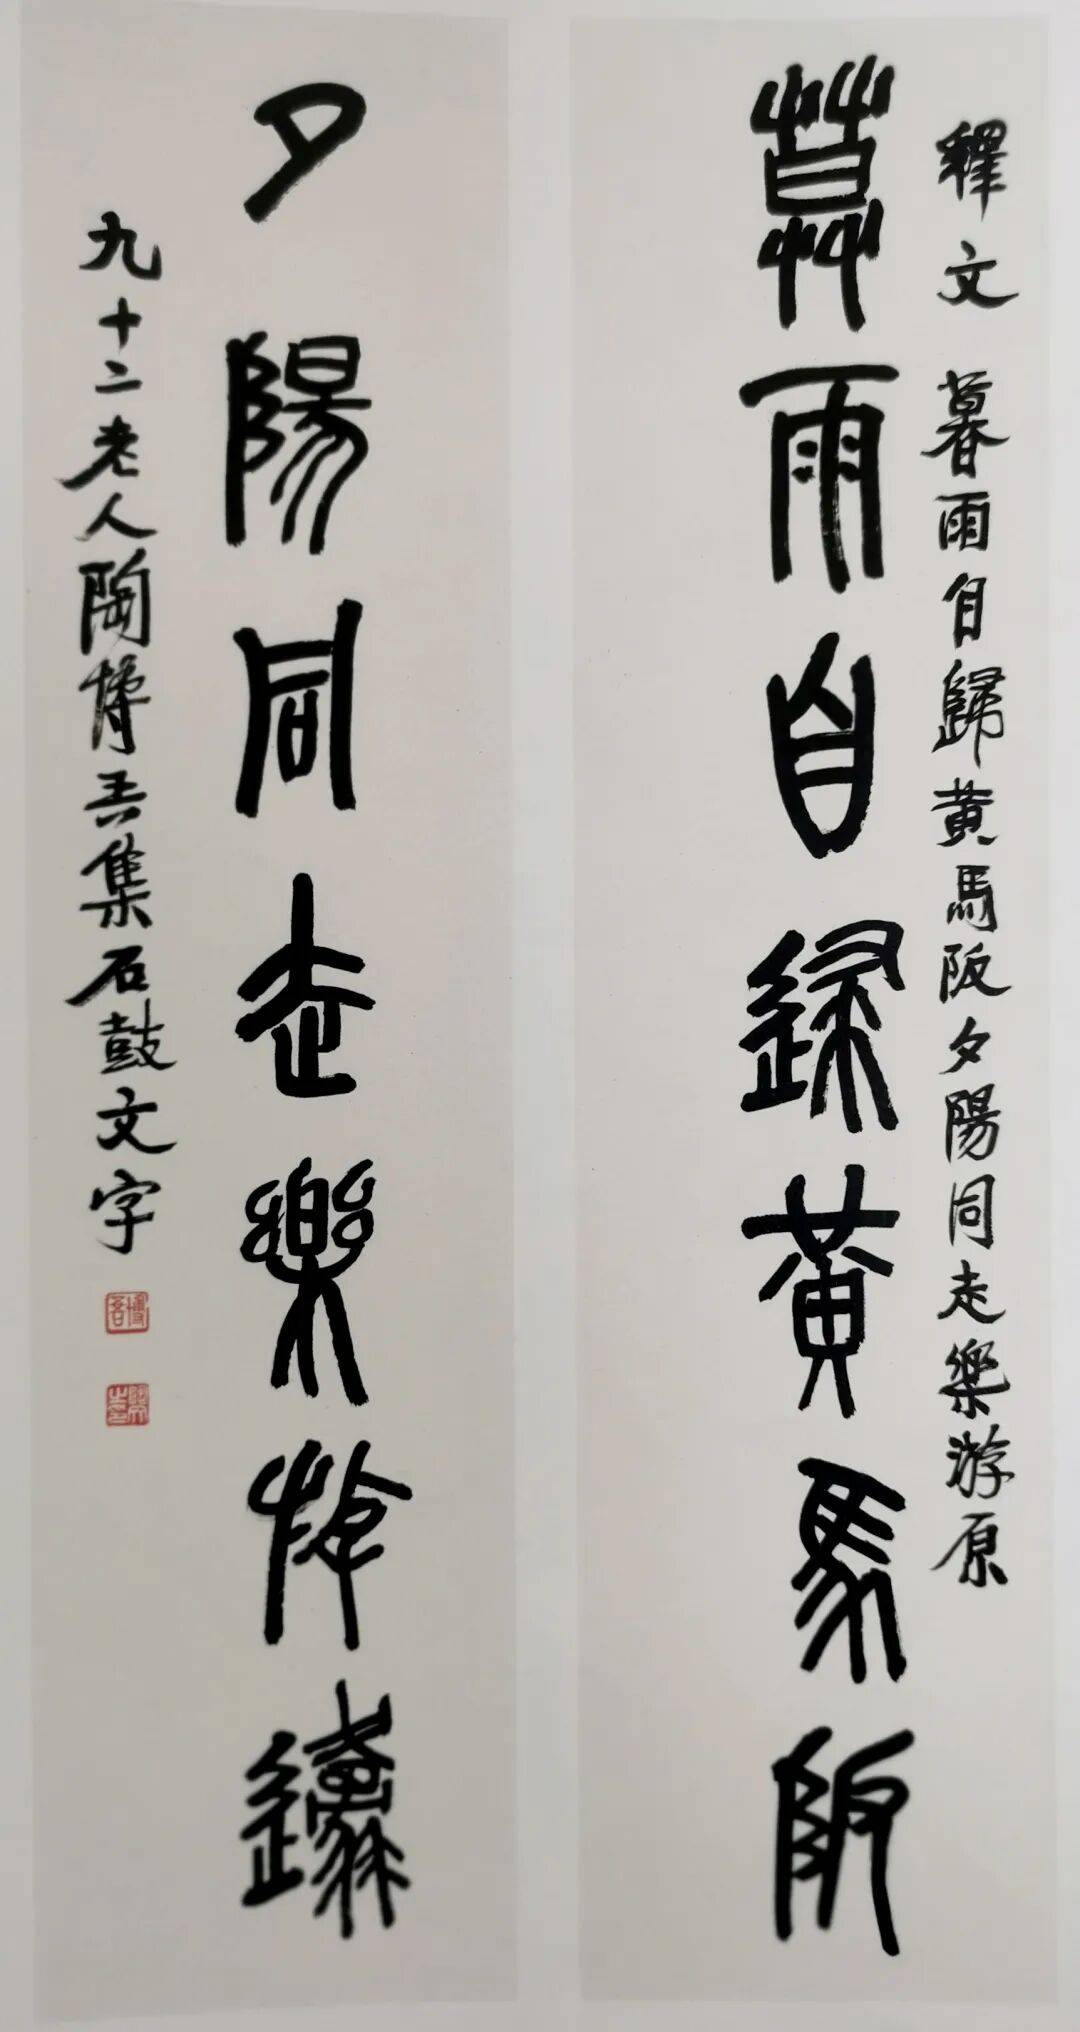 釋文 暮雨自歸黃馬阪夕陽同走樂游原
暮雨自歸黃馬阪
夕陽同走樂游原
九十二老人陶博吾集石鼓文字
博吾